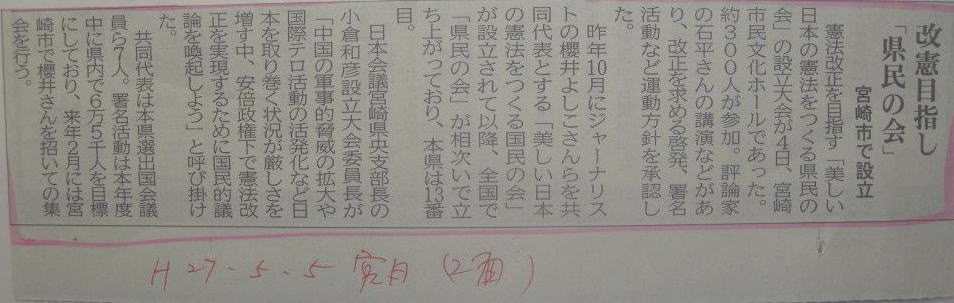 改憲目指し
「県民の会」
宮崎市で設立
憲法改正を目指す「美しい
日本の憲法をつくる県民の
会」の設立大会が4日、宮崎
市民文化ホールであった。
約300人が参加。評論家
の石平さんの講演などがあ
り、改正を求める啓発、署名
活動など運動方針を承認し
た。
昨年10月にジャーナリス
トの櫻井よしこさんらを共
同代表とする「美しい日本
の憲法をつくる国民の会」
が設立されて以降、全国で
「県民の会」が相次いで立
ち上がっており、本県は13番
目。
日本会議宮崎県央支部長の
小倉和彦設立大会委員長が
「中国の軍事的脅威の拡大や
国際テロ活動の活発化など日
本を取り巻く状況が厳しさを
増す中、安倍政権下で憲法改
正を実現するために国民的議
論を喚起しよう」と呼び掛け
た。
共同代表は本県選出国会議
員ら7人。署名活動は本年度
中に県内で6万5千人を目標
にしており、来年2月には宮
崎市で櫻井さんを招いての集
会を行う。
H27.5.5 宮日 (2面)